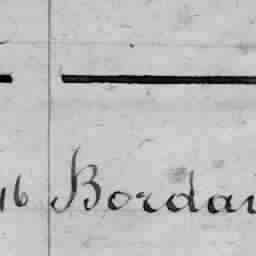 16 Bordai